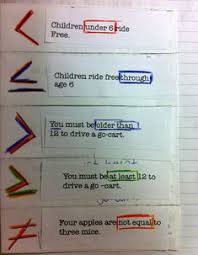 < Children under 6 ride
Free.
≤ Children ride free through
age 6
> You must be older than
12 to drive a go-cart.
≥ You must be at least 12 to
drive a go -cart.
≠ Four apples are not equal to
three mice.